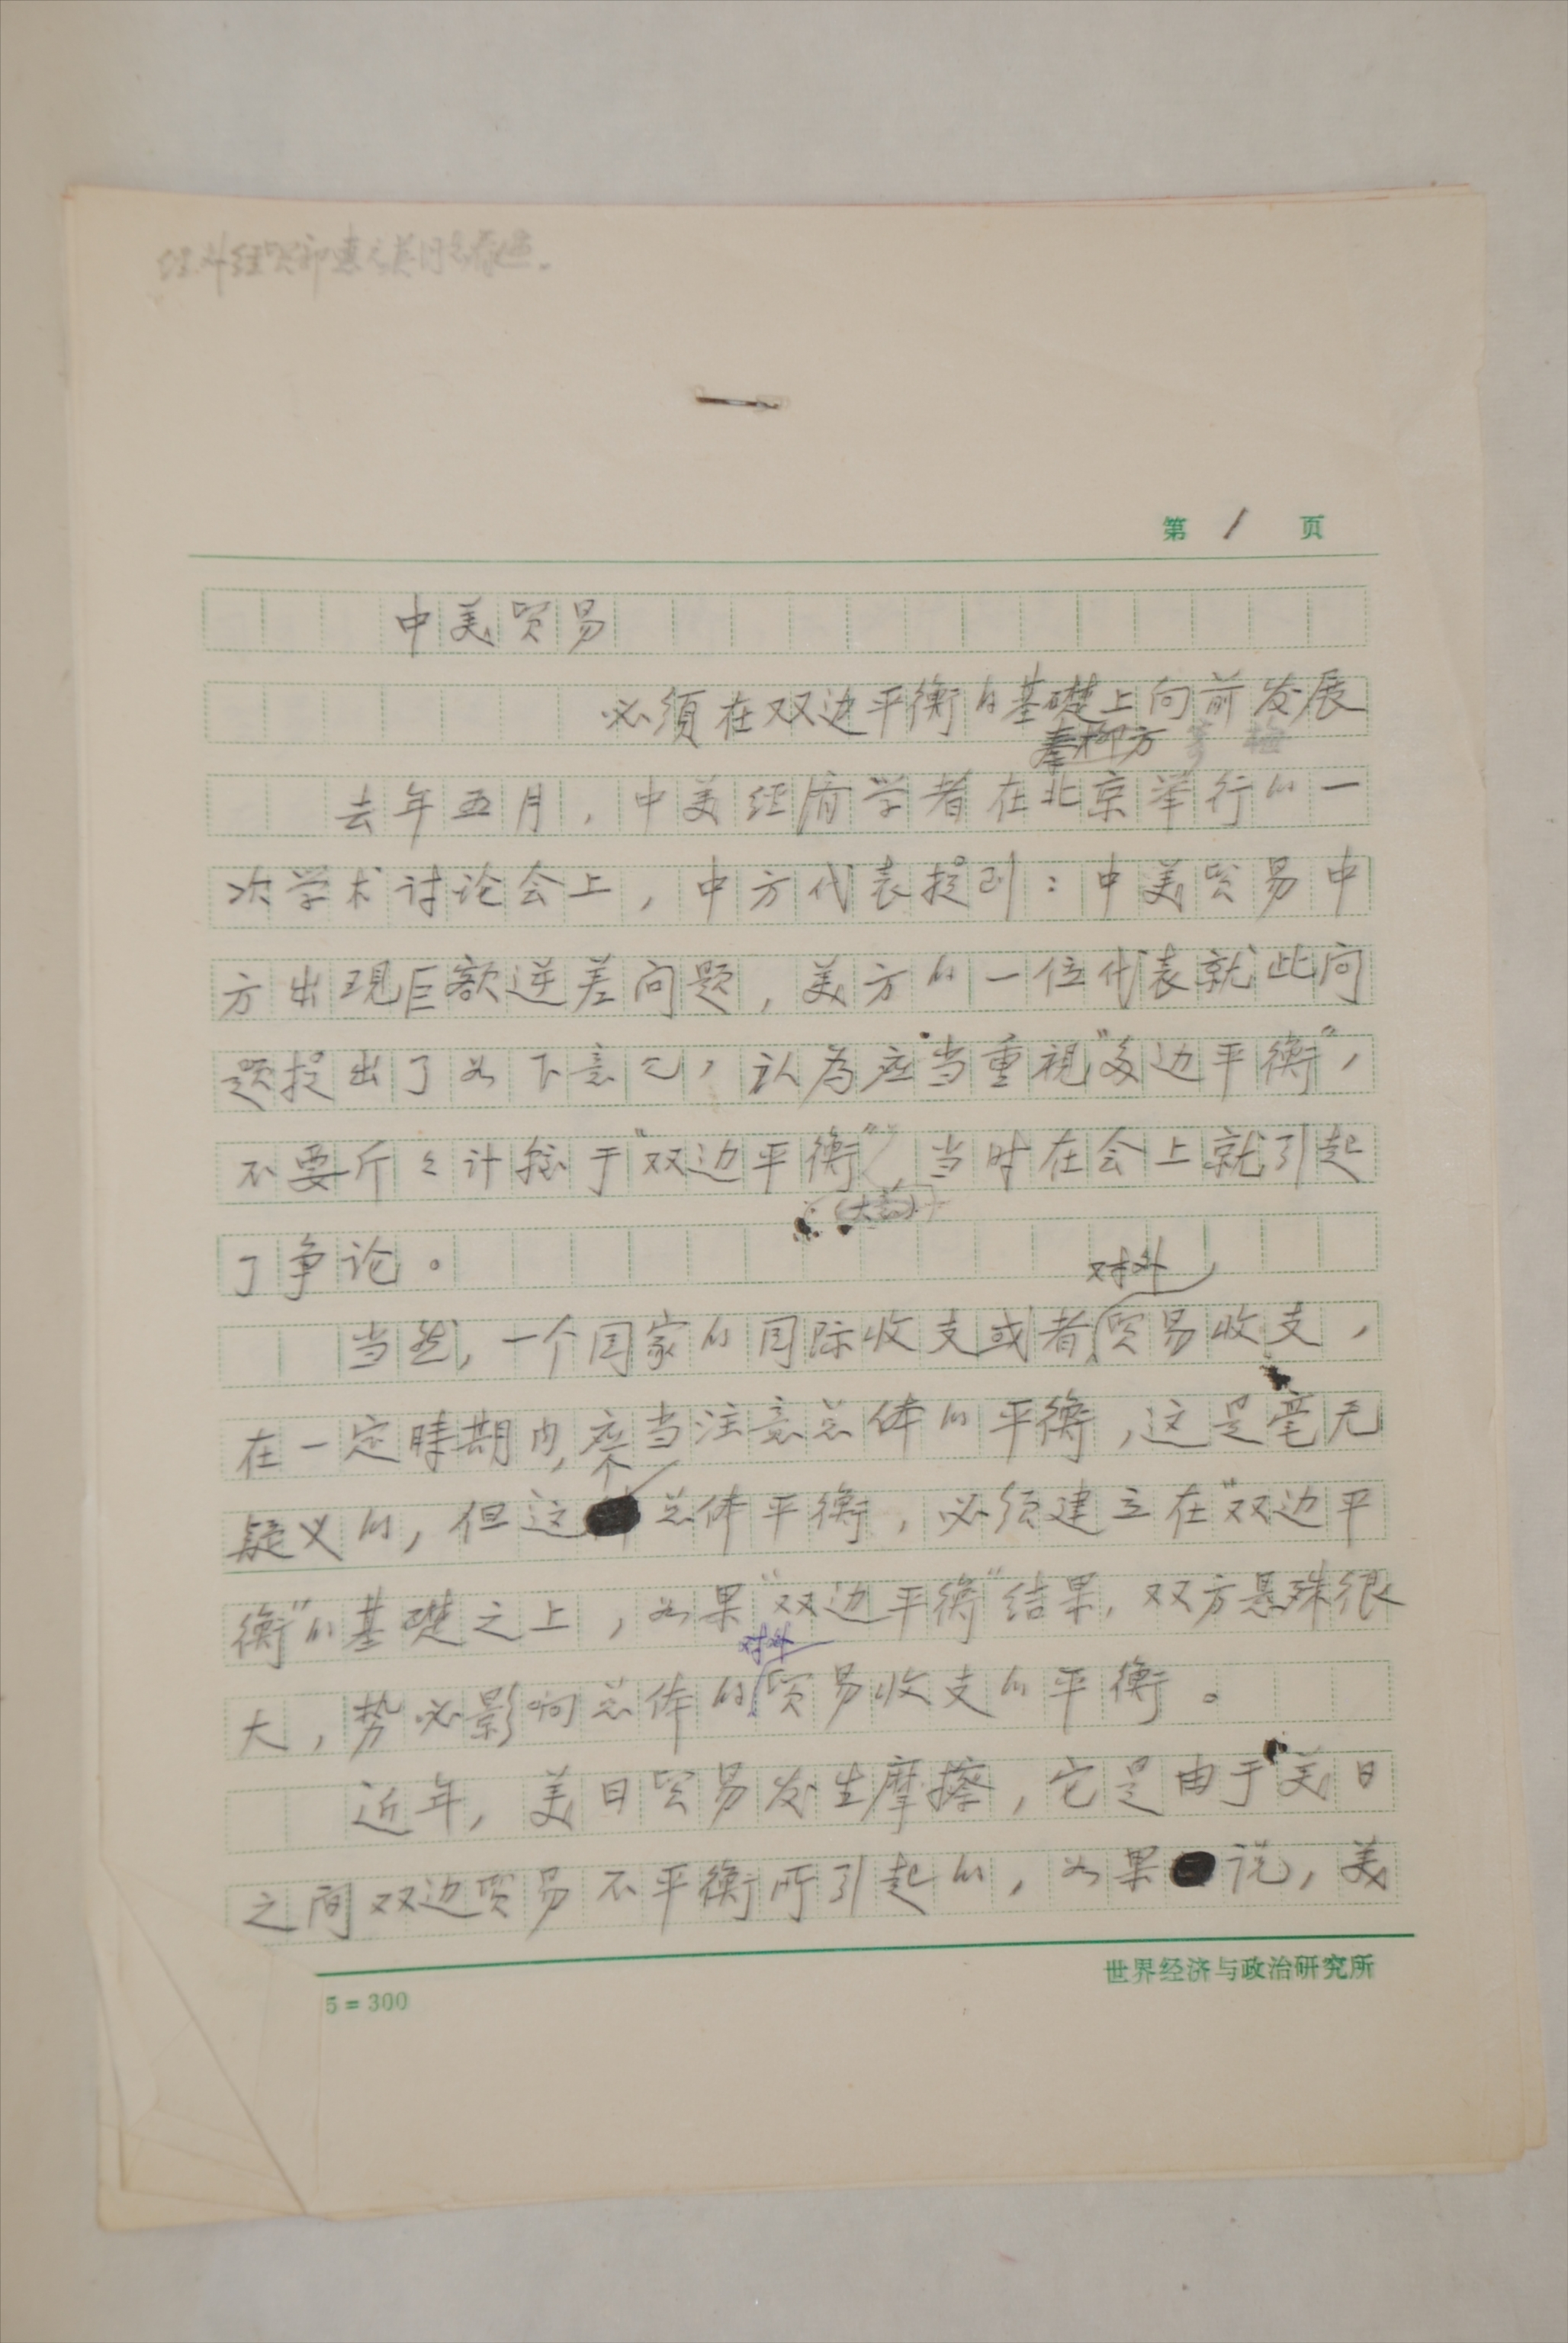 第 1 页
中美贸易
必须在双边平衡的基礎上向前发展
秦柳方
去年五月，中美经济学者在北京举行的一
次学术讨论会上，中方代表提到：中美贸易中
方出现巨额逆差问题，美方的一位代表就此问
题提出了如下意见，认为应当重視“多边平衡”，
不要斤々计较于“双边平衡”，当时在会上就引起
了争论。
对外
当然，一个国家的国际收支或者贸易收支，
在一定時期内，应当注意总体的平衡，这是毫无
疑义的，但这个总体平衡，必须建立在“双边平
衡”的基礎之上，如果“双边平衡”结果，双方悬殊很
对外
大，势必影响总体的贸易收支的平衡。
近年，美日贸易发生摩擦，它是由于美日
之间双边贸易不平衡所引起的，如果说，美
5＝300
世界经济与政治研究所